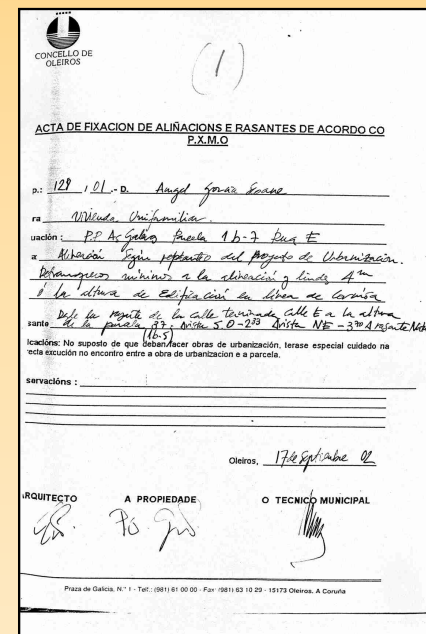 CONCELLO DE
OLEIROS
(1)
ACTA DE FIXACION DE ALIÑACIONS E RASANTES DE ACORDO CO
P.X.M.O
p.: 129 / 01 .- D. Angel García Seoane
ra Vivienda Unifamiliar.
uación : P.P As Galeras Parcela 1b-7 Rua E
a: Alineación Según replanteo del Proyecto de Urbanización.
Retranqueos mínimos a la alineación y lindes 4m
ó la altura de Edificación en línea de cornisa
Dsde la rasante de la calle terminada Calle E a la altura
sante de la parcela 37. Arista S.O-2 Arista NE - 3
(1b-5)
licacións: No suposto de que deban facer obras de urbanización, terase especial cuidado na
ecta excución no encontro entre a obra de urbanizacion e a parcela.
servacións :
Oleiros, 17 de Septiembre 02
RQUITECTO A PROPIEDADE O TECNICO MUNICIPAL
Praza de Galicia, N.° 1 - Telf.: (981) 61 00 00 - Fax: (981) 63 10 29 - 15173 Oleiros. A Coruña